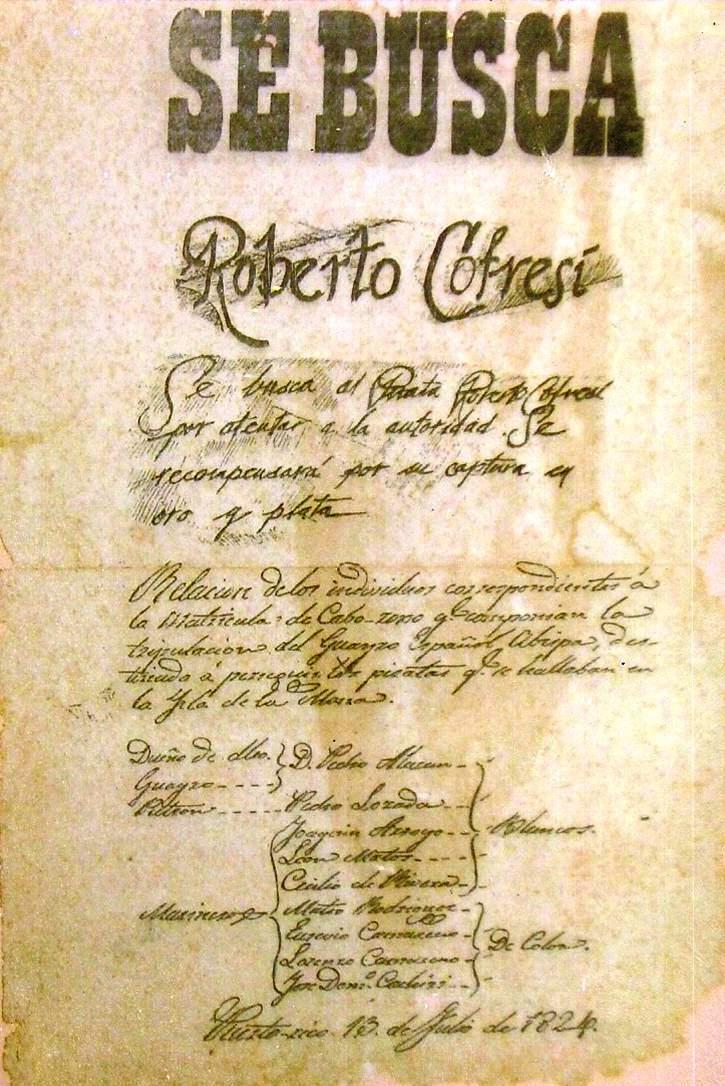 SE BUSCA
Roberto Cofresí
Se busca al Pirata Roberto Cofresí
por atentar a la autoridad. Se
recompensará por su captura en
oro y plata
Relacion de los individuos correspondientes á
la Matricula de Cabo-rono qe. componian la
tripulacion del Guayro Español Abispa, des-
tinado á perseguir los piratas qe. se hallaban en
la Ysla de la Mona.
Dueño de dho. D. Pedro Alacan
Guayro
Patron Pedro Lozada
Joaquin Arroyo Blancos.
Leon Matos
Cecilio de Rivera
Marineros Mateo Rodriguez
Eusevio Carrasceno De Color.
Lorenzo Carrasceno
Jose Domo.
Puerto-rico 13 de Julio de 1824.